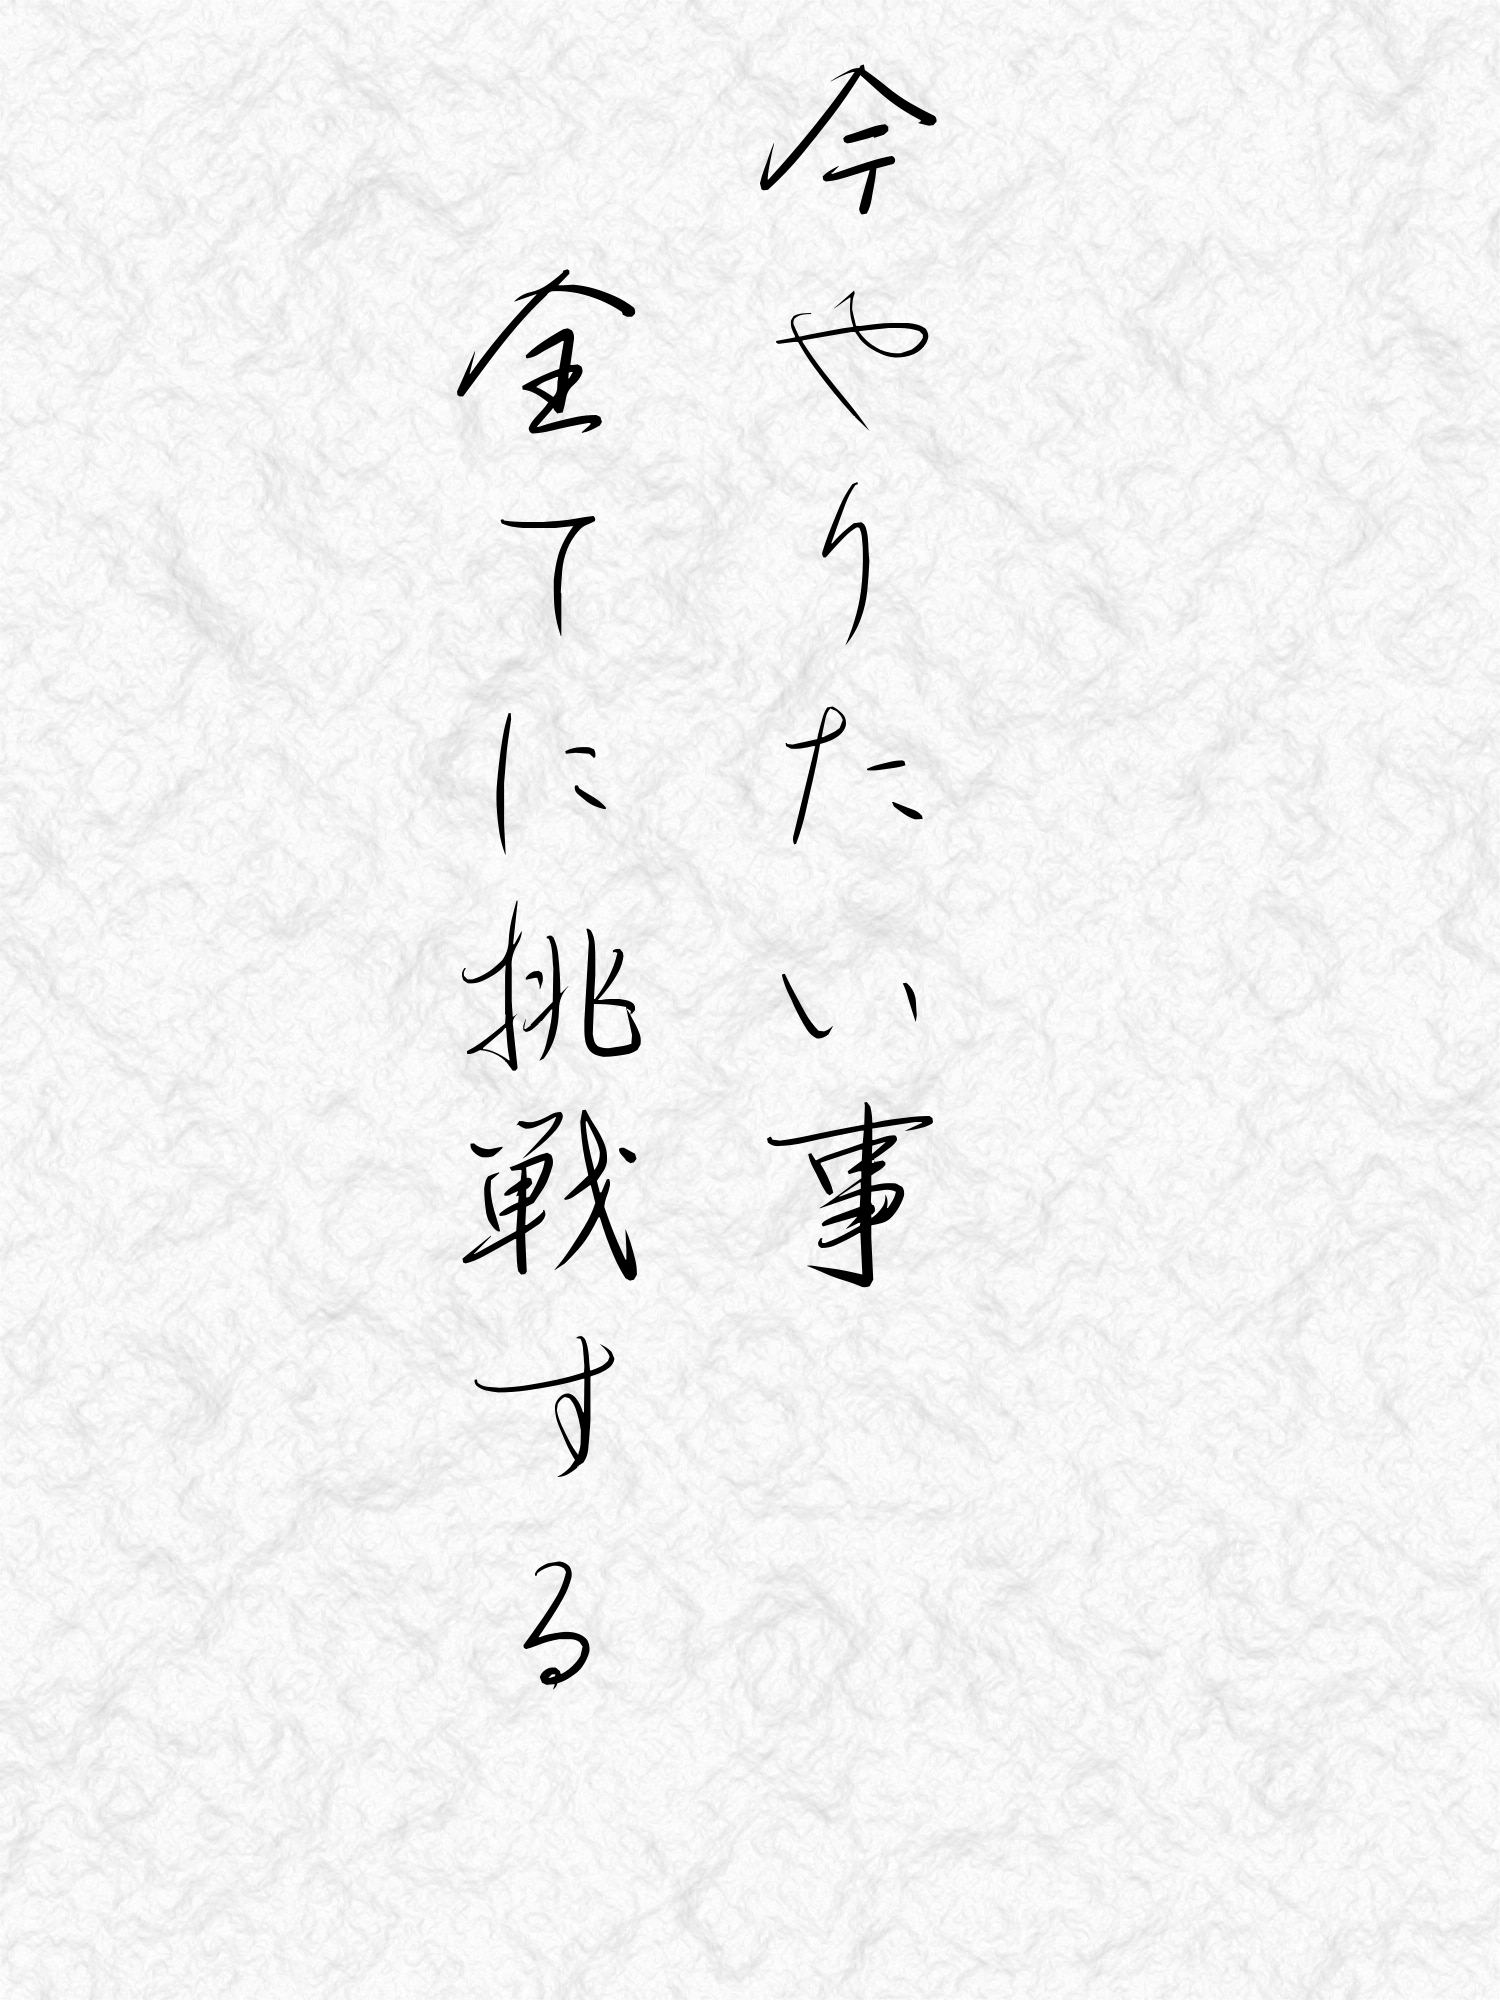 今やりたい事
全てに挑戦する